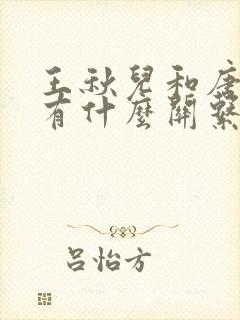 王秋兒和唐
有什麼關繫
呂怡方